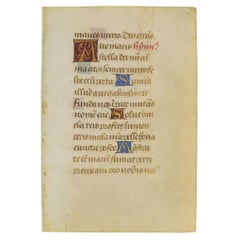 Deo gras
Aue maris hymn
stella dei al
ma atq semper virgo fe
lix celi porta Sumes
illud aue gabrielis ore
funda nos in pace mutas
nomen eue Solue vin
cla reis profer lumen
cecis mala nra pelle bona
cuncta posce Monstra
te esse matrem sumat per te
preces qui pro nobis nat